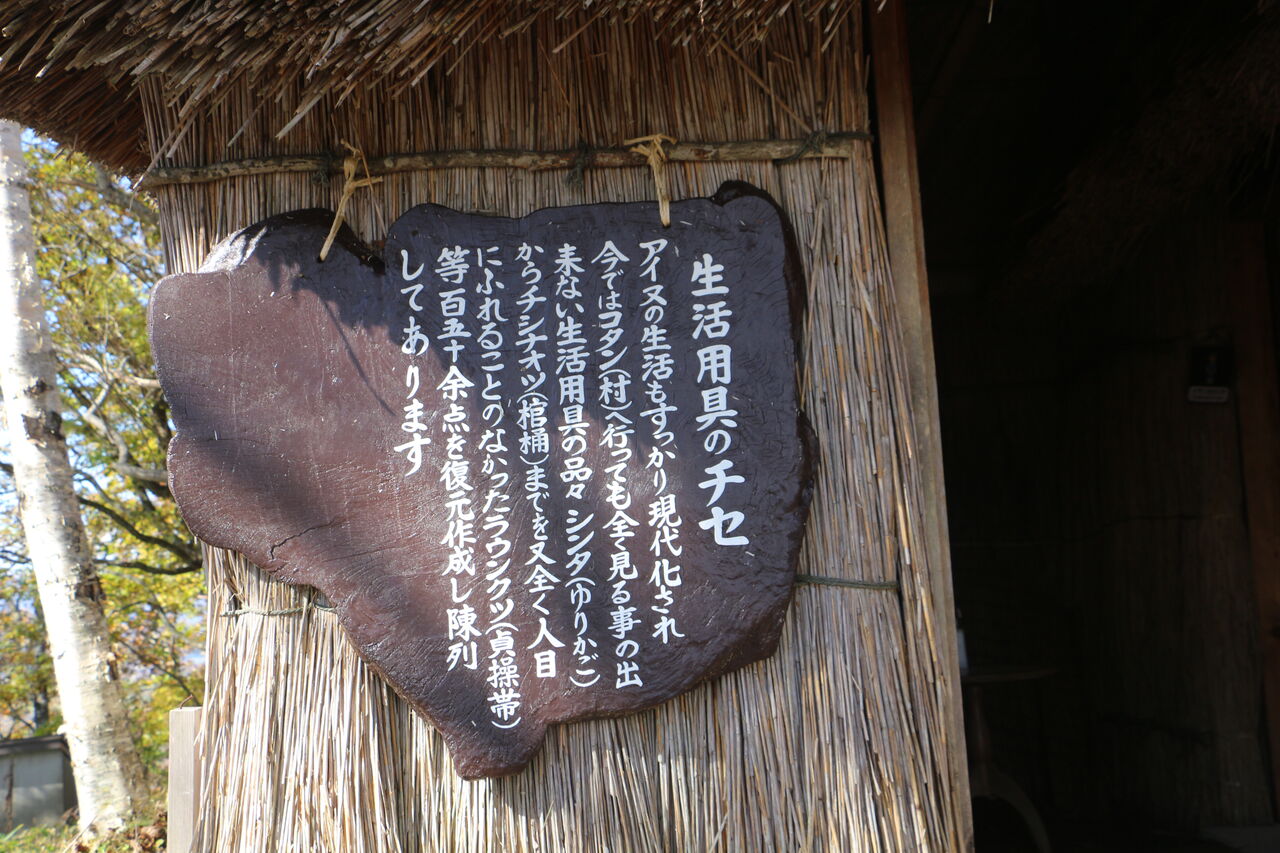 生活用具のチセ
アイヌの生活もすっかり現代化され
今ではコタン(村)へ行っても全く見る事の出
来ない生活用具の品々 シンタ(ゆりかご)
からチシナオツ(棺桶)までを又全く人目
にふれることのなかったラウンクツ(貞操帯)
等百五十余点を復元作成し陳列
してあります